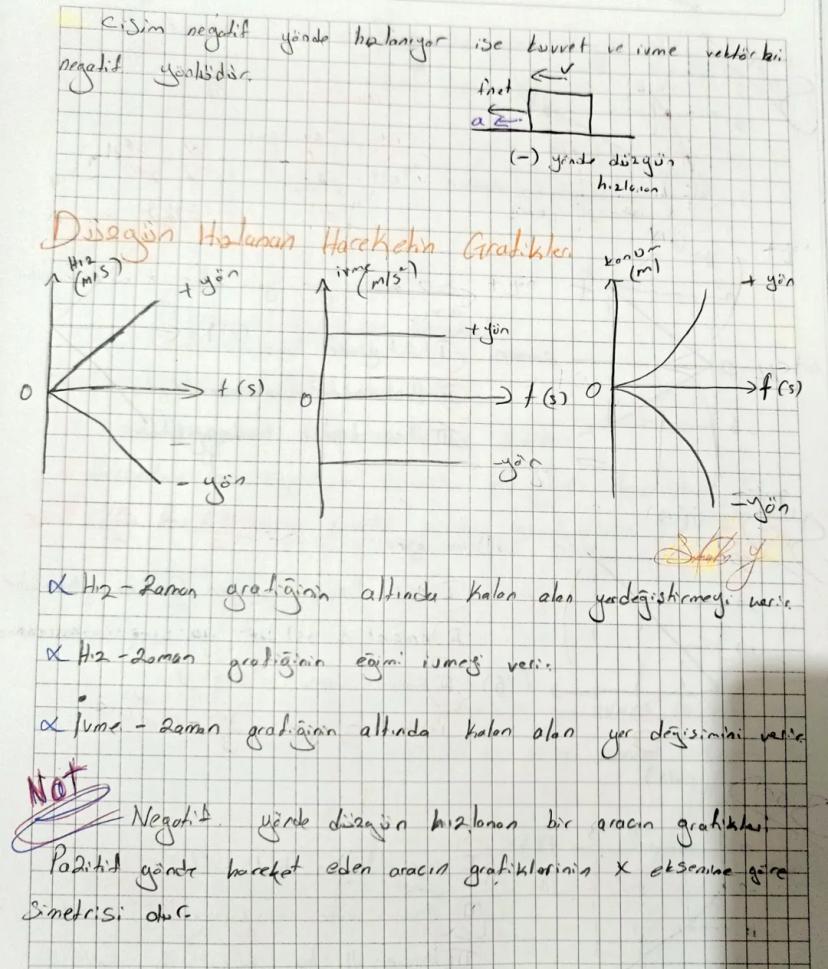 Cisim negatif yönde hızlanıyor ise kuvvet ve ivme vektörleri
negatif yönlüdür.
V
fnet
a
(-) yönde düzgün
hızlanan
Düzgün Hızlanan Hareketin Grafikleri
Hız
(m/s)
+ yön
t (s)
0
- yön
ivme (m/s²)
+ yön
t (s)
0
-yön
konum
(m)
+ yön
t (s)
0
-yön
α Hız-Zaman grafiğinin altında kalan alan yerdeğiştirmeyi verir.
α Hız-Zaman grafiğinin eğimi ivmeyi verir.
α İvme - Zaman grafiğinin altında kalan alan yer değişimini verir.
NOT
Negatif yönde düzgün hızlanan bir aracın grafikleri
Pozitif yönde hareket eden aracın grafiklerinin x eksenine göre
Simetrisi olur.